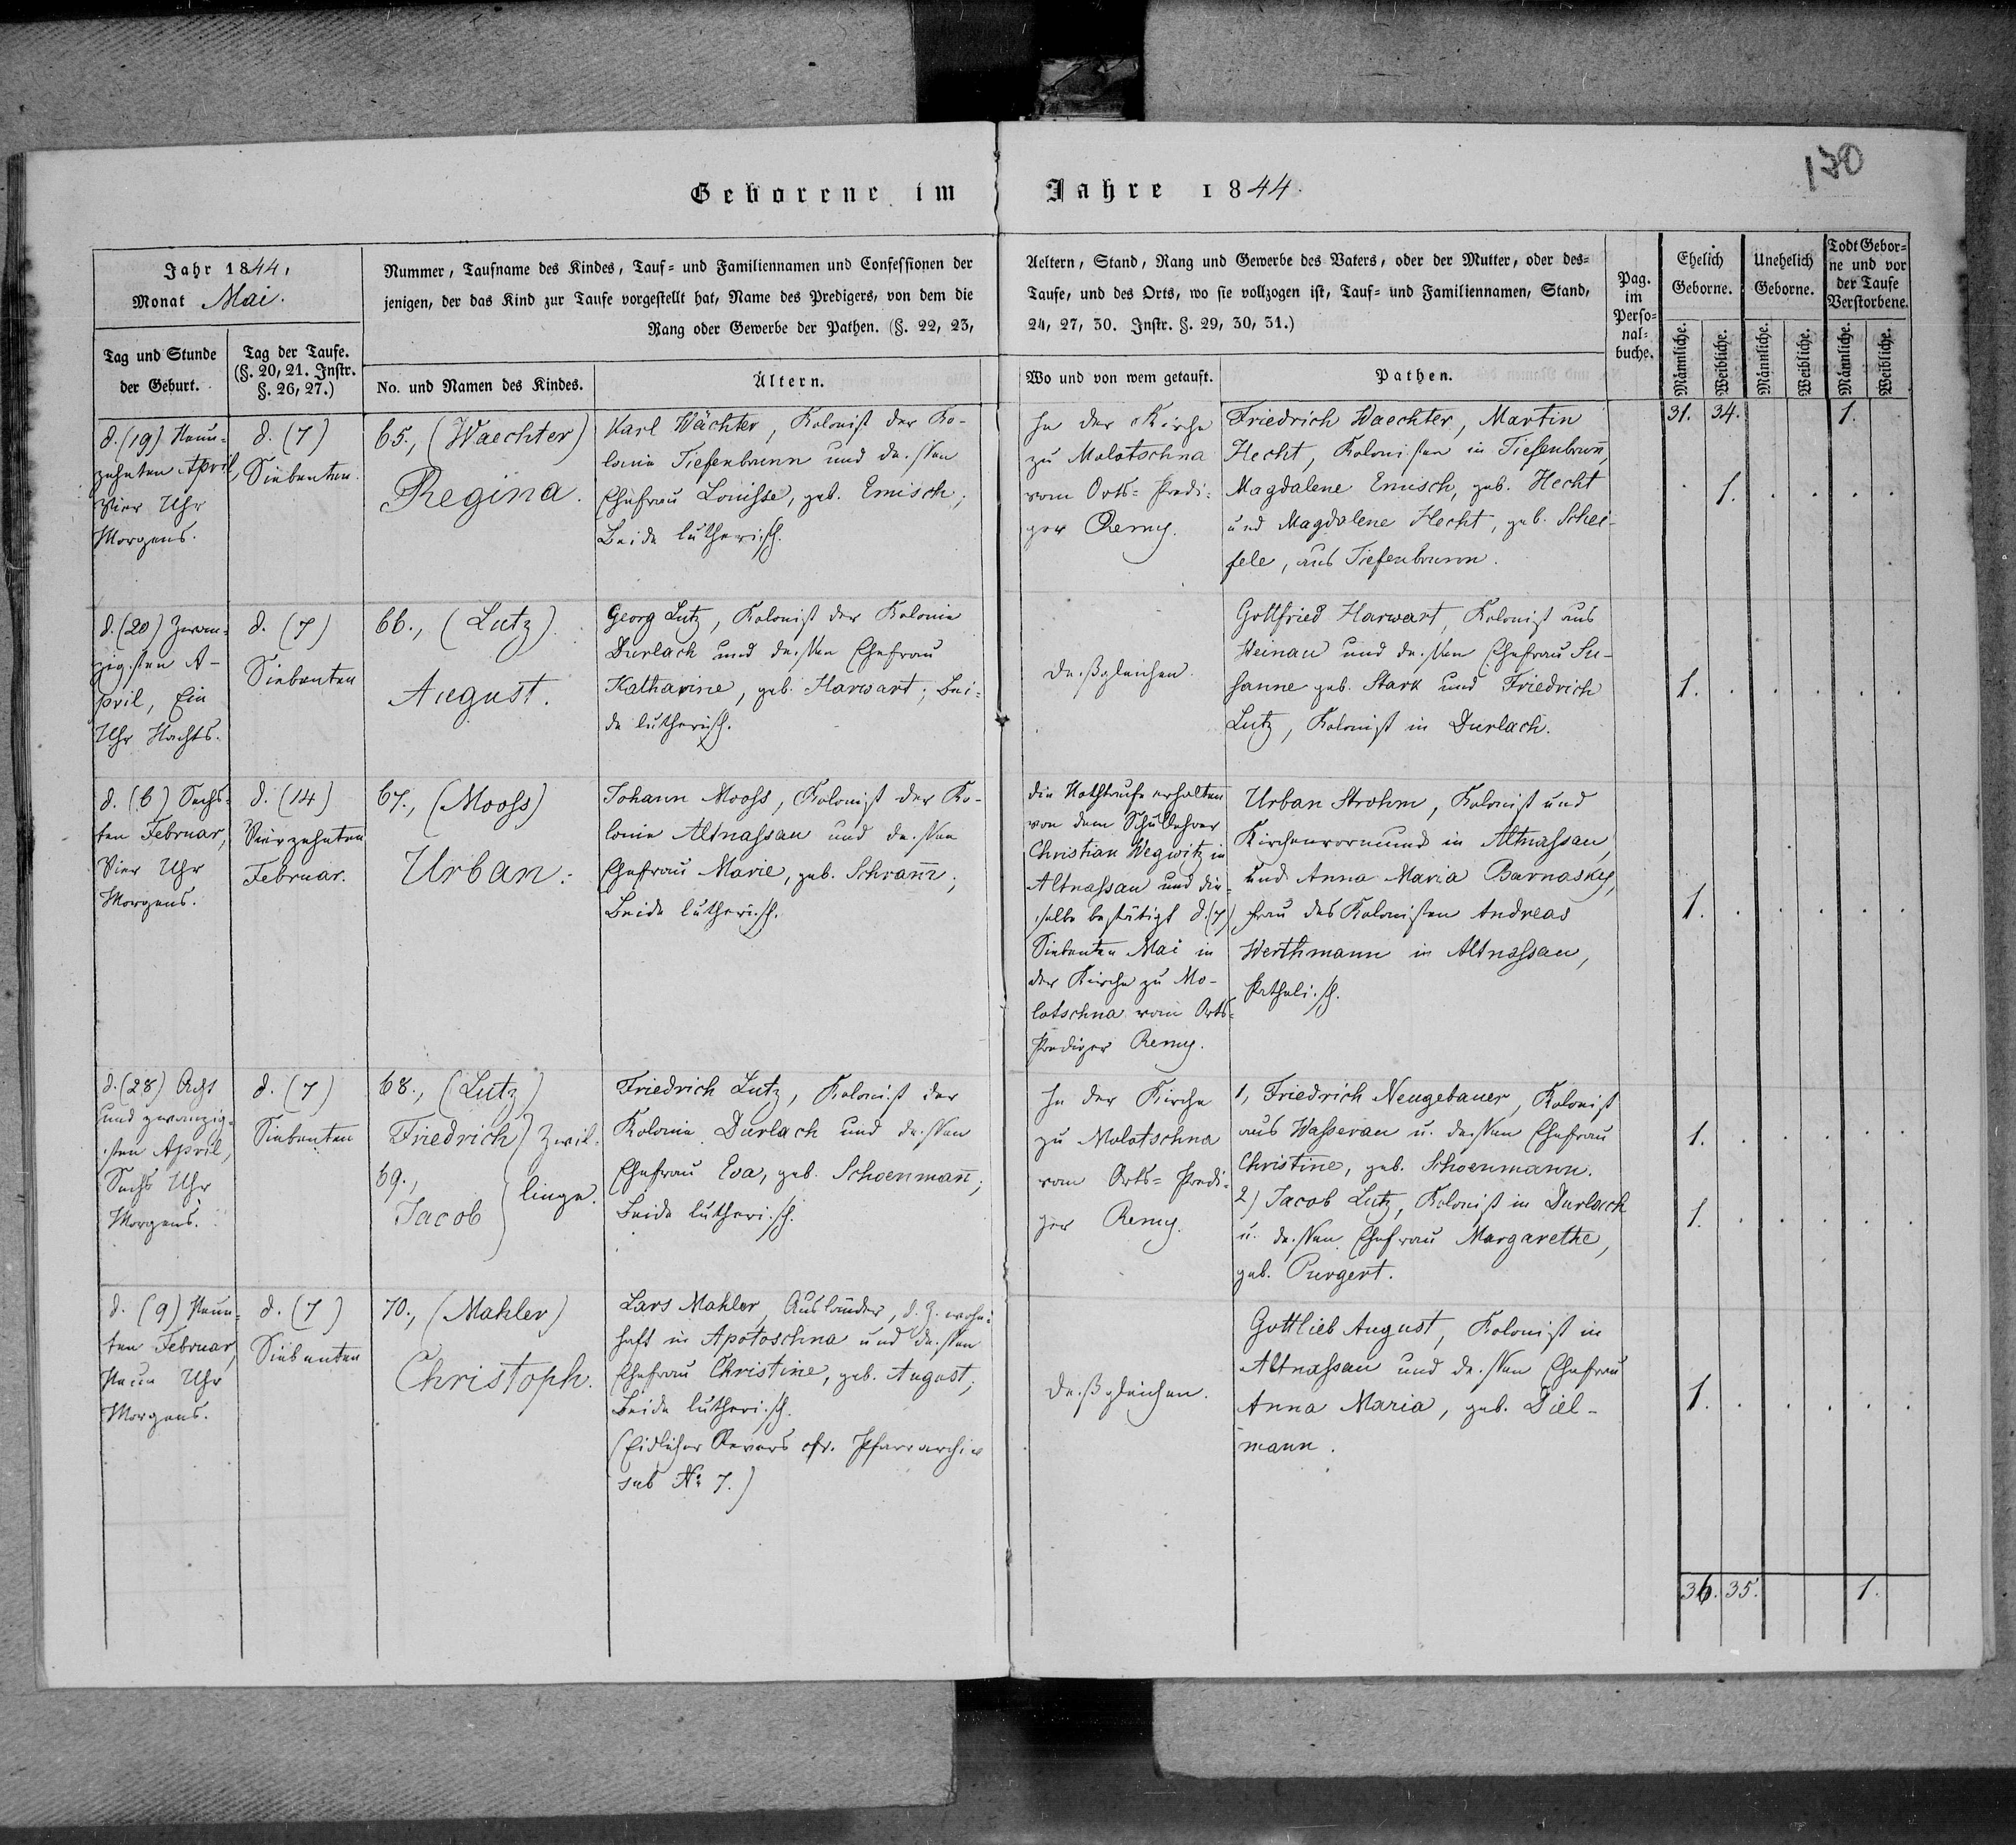 130
Geborene im Jahre 1844.
Jahr 1844,
Monat Mai.
Nummer, Taufname des Kindes, Tauf- und Familiennamen und Confessionen der Aeltern, Stand, Rang und Gewerbe des Vaters, oder der Mutter, oder des-
jenigen, der das Kind zur Taufe vorgestellt hat, Name des Predigers, von dem die Taufe, und des Orts, wo sie vollzogen ist, Tauf- und Familiennamen, Stand,
Rang oder Gewerbe der Pathen. (§. 22, 23, 24, 27, 30. Instr. §. 29, 30, 31.)
Pag.
im
Perso-
nal-
buche.
Ehelich
Geborne.
Unehelich
Geborne.
Todt Gebor-
ne und vor
der Taufe
Verstorbene.
Tag und Stunde
der Geburt.
Tag der Taufe.
(§. 20, 21. Instr.
§. 26, 27.)
No. und Namen des Kindes.
Ältern.
Wo und von wem getauft.
Pathen.
Männliche.
Weibliche.
Männliche.
Weibliche.
Männliche.
Weibliche.
31. 34. 1.
d. (19) Neun-
zehnten April,
Vier Uhr
Morgens.
d. (7)
Siebenten.
65., (Waechter)
Regina.
Karl Wächter, Kolonist der Ko-
lonie Tiefenbrunn und dessen
Ehefrau Louisse, geb. Emisch;
Beide lutherisch.
In der Kirche
zu Molotschna
vom Orts-Predi-
ger Remy.
Friedrich Waechter, Martin
Hecht, Kolonisten in Tiefenbrun̄,
Magdalene Emisch, geb. Hecht
und Magdalene Hecht, geb. Schei-
fele, aus Tiefenbrunn.
1.
d. (20) Zwan-
zigsten A-
pril, Ein
Uhr Nachts.
d. (7)
Siebenten
66., (Lutz)
August.
Georg Lutz, Kolonist der Kolonie
Durlach und dessen Ehefrau
Katharine, geb. Harwart; Bei-
de lutherisch.
Deßgleichen.
Gottfried Harwart, Kolonist aus
Weinau und dessen Ehefrau Su-
sanne geb. Stark und Friedrich
Lutz, Kolonist in Durlach.
1.
d. (6) Sechs-
ten Februar,
Vier Uhr
Morgens.
d. (14)
Vierzehnten
Februar.
67., (Mooss)
Urban.
Johann Mooss, Kolonist der Ko-
lonie Altnassau und dessen
Ehefrau Marie, geb. Schram̄;
Beide lutherisch.
die Nothtaufe erhalten
von dem Schullehrer
Christian Wegwitz in
Altnassau und die-
selbe bestätigt d. (7)
Siebenten Mai in
der Kirche zu Mo-
lotschna vom Orts-
Prediger Remy.
Urban Strohm, Kolonist und
Kirchenvormund in Altnassau,
und Anna Maria Barnasky,
Frau des Kolonisten Andreas
Werthmann in Altnassau,
Katholisch.
1.
d. (28) Acht
und zwanzig-
sten April,
Sechs Uhr
Morgens.
d. (7)
Siebenten
68., (Lutz)
Friedrich
69.,
Jacob
Zwil-
linge.
Friedrich Lutz, Kolonist der
Kolonie Durlach und dessen
Ehefrau Eva, geb. Schoenman̄;
Beide lutherisch.
In der Kirche
zu Molotschna
vom Orts-Predi-
ger Remy.
1, Friedrich Neugebauer, Kolonist
aus Wasserau u. dessen Ehefrau
Christine, geb. Schoenmann.
2) Jacob Lutz, Kolonist in Durlach
u. dessen Ehefrau Margarethe,
geb. Purgert.
1.
1.
d. (9) Neun-
ten Februar,
Neun Uhr
Morgens.
d. (7)
Siebenten
70., (Mahler)
Christoph.
Lars Mahler, Ausländer, d. Z. wohn-
haft in Apotoschna und dessen
Ehefrau Christine, geb. August;
Beide lutherisch.
(Eidlicher Revers cfr. Pfarrarchiv
sub № 7.)
Deßgleichen.
Gottlieb August, Kolonist in
Altnassau und dessen Ehefrau
Anna Maria, geb. Diel-
mann.
1.
36. 35. 1.